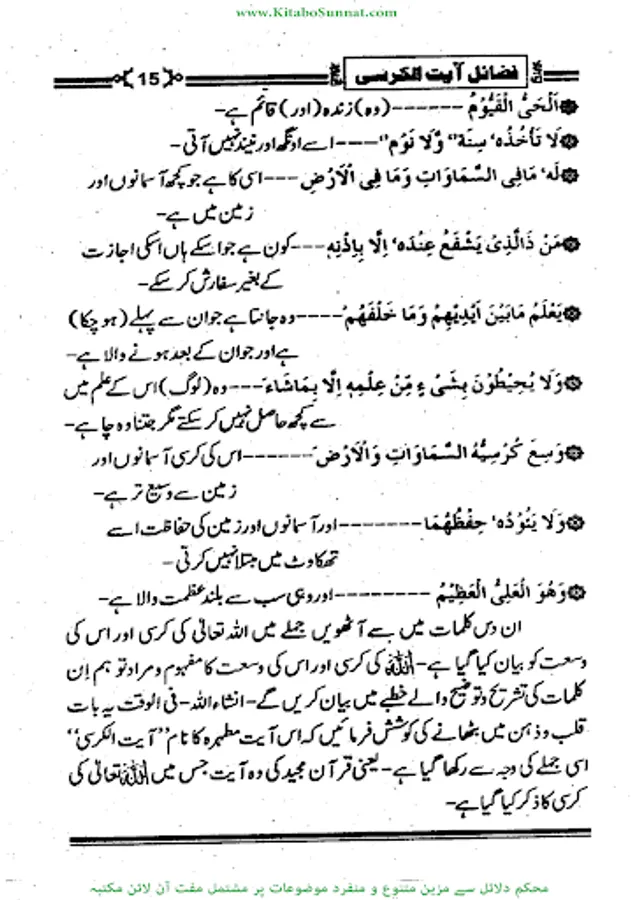 www.KitaboSunnat.com
فضائل آیت الکرسی
15
اَلْحَیُّ الْقَیُّوْمُ ------(وہ) زندہ (اور) قائم ہے-
لَا تَأْخُذُہٗ سِنَۃٌ وَّلَا نَوْمٌ----اسے اونگھ اور نیند نہیں آتی-
لَہٗ مَافِی السَّمَاوَاتِ وَمَا فِی الْاَرْضِ---اسی کا ہے جو کچھ آسمانوں اور
زمین میں ہے-
مَنْ ذَالَّذِیْ یَشْفَعُ عِنْدَہٗ اِلَّا بِاِذْنِہٖ---کون ہے جو اسکے ہاں اسکی اجازت
کے بغیر سفارش کر سکے-
یَعْلَمُ مَابَیْنَ اَیْدِیْھِمْ وَمَا خَلْفَھُمْ----وہ جانتا ہے جو ان سے پہلے (ہو چکا)
ہے اور جو ان کے بعد ہونے والا ہے-
وَلَا یُحِیْطُوْنَ بِشَیْ ءٍ مِّنْ عِلْمِہٖ اِلَّا بِمَاشَاءَ---وہ (لوگ) اس کے علم میں
سے کچھ حاصل نہیں کر سکتے مگر جتنا وہ چاہے-
وَسِعَ کُرْسِیُّہُ السَّمَاوَاتِ وَالْاَرْضَ-------اس کی کرسی آسمانوں اور
زمین سے وسیع تر ہے-
وَلَا یَئُوْدُہٗ حِفْظُھُمَا-------اور آسمانوں اور زمین کی حفاظت اسے
تھکاوٹ میں مبتلا نہیں کرتی-
وَھُوَ الْعَلِیُّ الْعَظِیْمُ --------اور وہی سب سے بلند عظمت والا ہے-
ان دس کلمات میں سے آٹھویں جملے میں اللہ تعالیٰ کی کرسی اور اس کی
وسعت کو بیان کیا گیا ہے-اللہ کی کرسی اور اس کی وسعت کا مفہوم و مراد تو ہم اِن
کلمات کی تشریح و توضیح والے خطبے میں بیان کریں گے-انشاء اللہ-فی الوقت یہ بات
قلب و ذہن میں بٹھانے کی کوشش فرمائیں کہ اس آیت مطہرہ کا نام ’’آیت الکرسی‘‘
اسی جملے کی وجہ سے رکھا گیا ہے-یعنی قرآن مجید کی وہ آیت جس میں اللہ تعالیٰ کی
کرسی کا ذکر کیا گیا ہے-
محکم دلائل سے مزین متنوع و منفرد موضوعات پر مشتمل مفت آن لائن مکتبہ